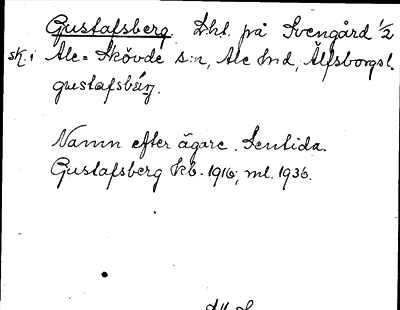 Gustafsberg. Lht. på Svengård 1/2
sk. i Ale-Skövde s:n, Ale hd, Älfsborgs l.
gustafsbärj.
Namn efter ägare. Sentida.
Gustafsberg kb. 1916, ml. 1936.